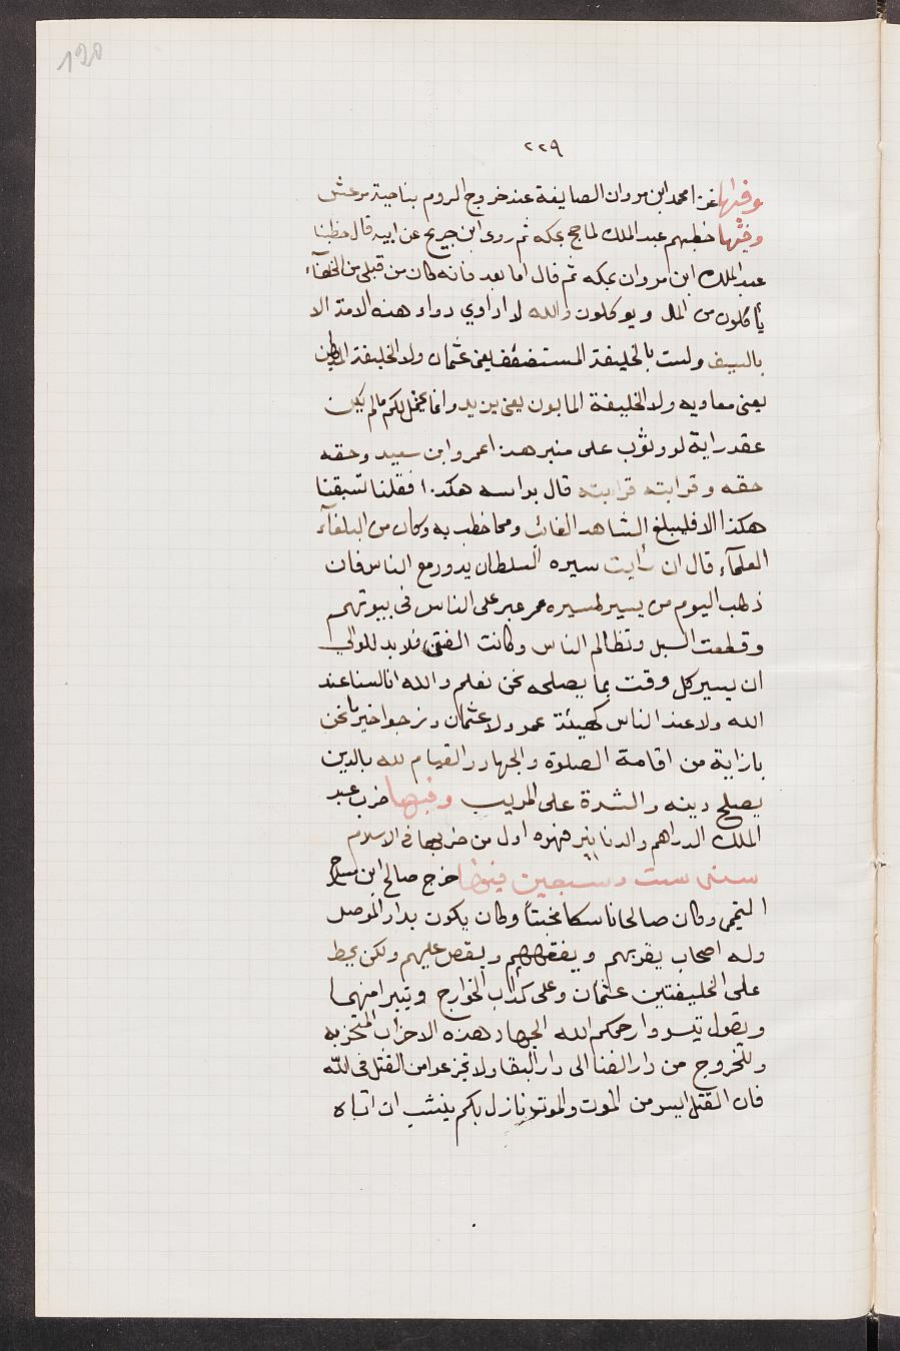 120
٢٢٩
وفيها غزا محمد ابن مروان الصايفة عند خروج الروم بناحية مرعش
وفيها خطبهم عبد الملك لما حج بمكه ثم روى ابن جريح عن ابيه قال خطبنا
عبد الملك ابن مروان بمكه ثم قال اما بعد فانه كان من قبلي من الخلفآء
يأكلون من المال ويوكلون والله لا اداوي دواء هذه الامة الا
بالسيف ولست بالخليفة المستضعف يعني عثمان ولا الخليفة
يعني معاويه ولا الخليفة المابون يعني يزيد وانما نحتمل لكم مالم يكن
عقد راية او وثوب على منبر هذا عمرو ابن سعيد وحقه
حقه وقرابته قرابته قال براسه هكذا فقلنا بسيفنا
هكذا الا فليبلغ الشاهد الغائب ومما خطب به وكان من البلغآء
العلمآء قال ان رأيت سيره السلطان يدور مع الناس فان
ذهب اليوم من يسير لمسيره عمر عبر على الناس في بيوتهم
وقطعت السبل وتظالم الناس وكانت الفتن فلا بد للوالي
ان يسير كل وقت بما يصلحه نحن نعلم والله انا لسنا عند
الله ولا عند الناس كهيئة عمر ولا عثمان ونرجوا خيرما نحن
بازاية من اقامة الصلوة والجهاد والقيام لله بالدين
يصلح دينه والشدة على المريب وفيها ضرب عبد
الملك الدراهم والدنانير فهوه اول من ضربها في الاسلام
سنه ست وسبعين فيها خرج صالح ابن مسرح
التيمى وكان صالحا ناسكا مخبتاً وكان يكون بدار الموصل
وله اصحاب يقريهم ويفقههم ويقص عليهم ولكن يحط
على الخليفتين عثمان وعلى كداب الخوارج ويتبرا منهما
ويقول تيسروا رحمكم الله لجهاد هذه الاحزاب المتحزبه
وللخروج من دار الفنا الى دار البقا ولا تجزعوا من القتل في الله
فان القتل ايسر من الموت والموت نازل بكم ينشب ان اتاه